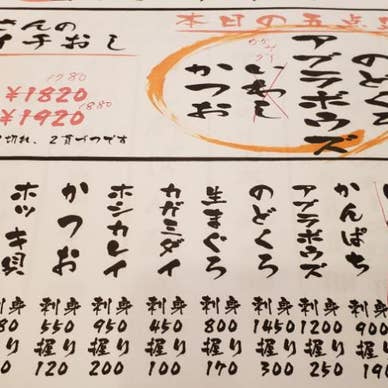 本日の五点
のどくろ
アブラボウズ
いわし
かつお
さんの
イチおし
1780
¥1820
1880
¥1920
切れ、2貫づつです
かんぱち
刺身
900
握り
アブラボウズ
刺身
1200
握り
250
のどくろ
刺身
1450
握り
300
生まぐろ
刺身
800
握り
170
カガミダイ
刺身
450
握り
100
ホシカレイ
刺身
950
握り
200
かつお
刺身
550
握り
120
ホッキ貝
刺身
80
握り
0